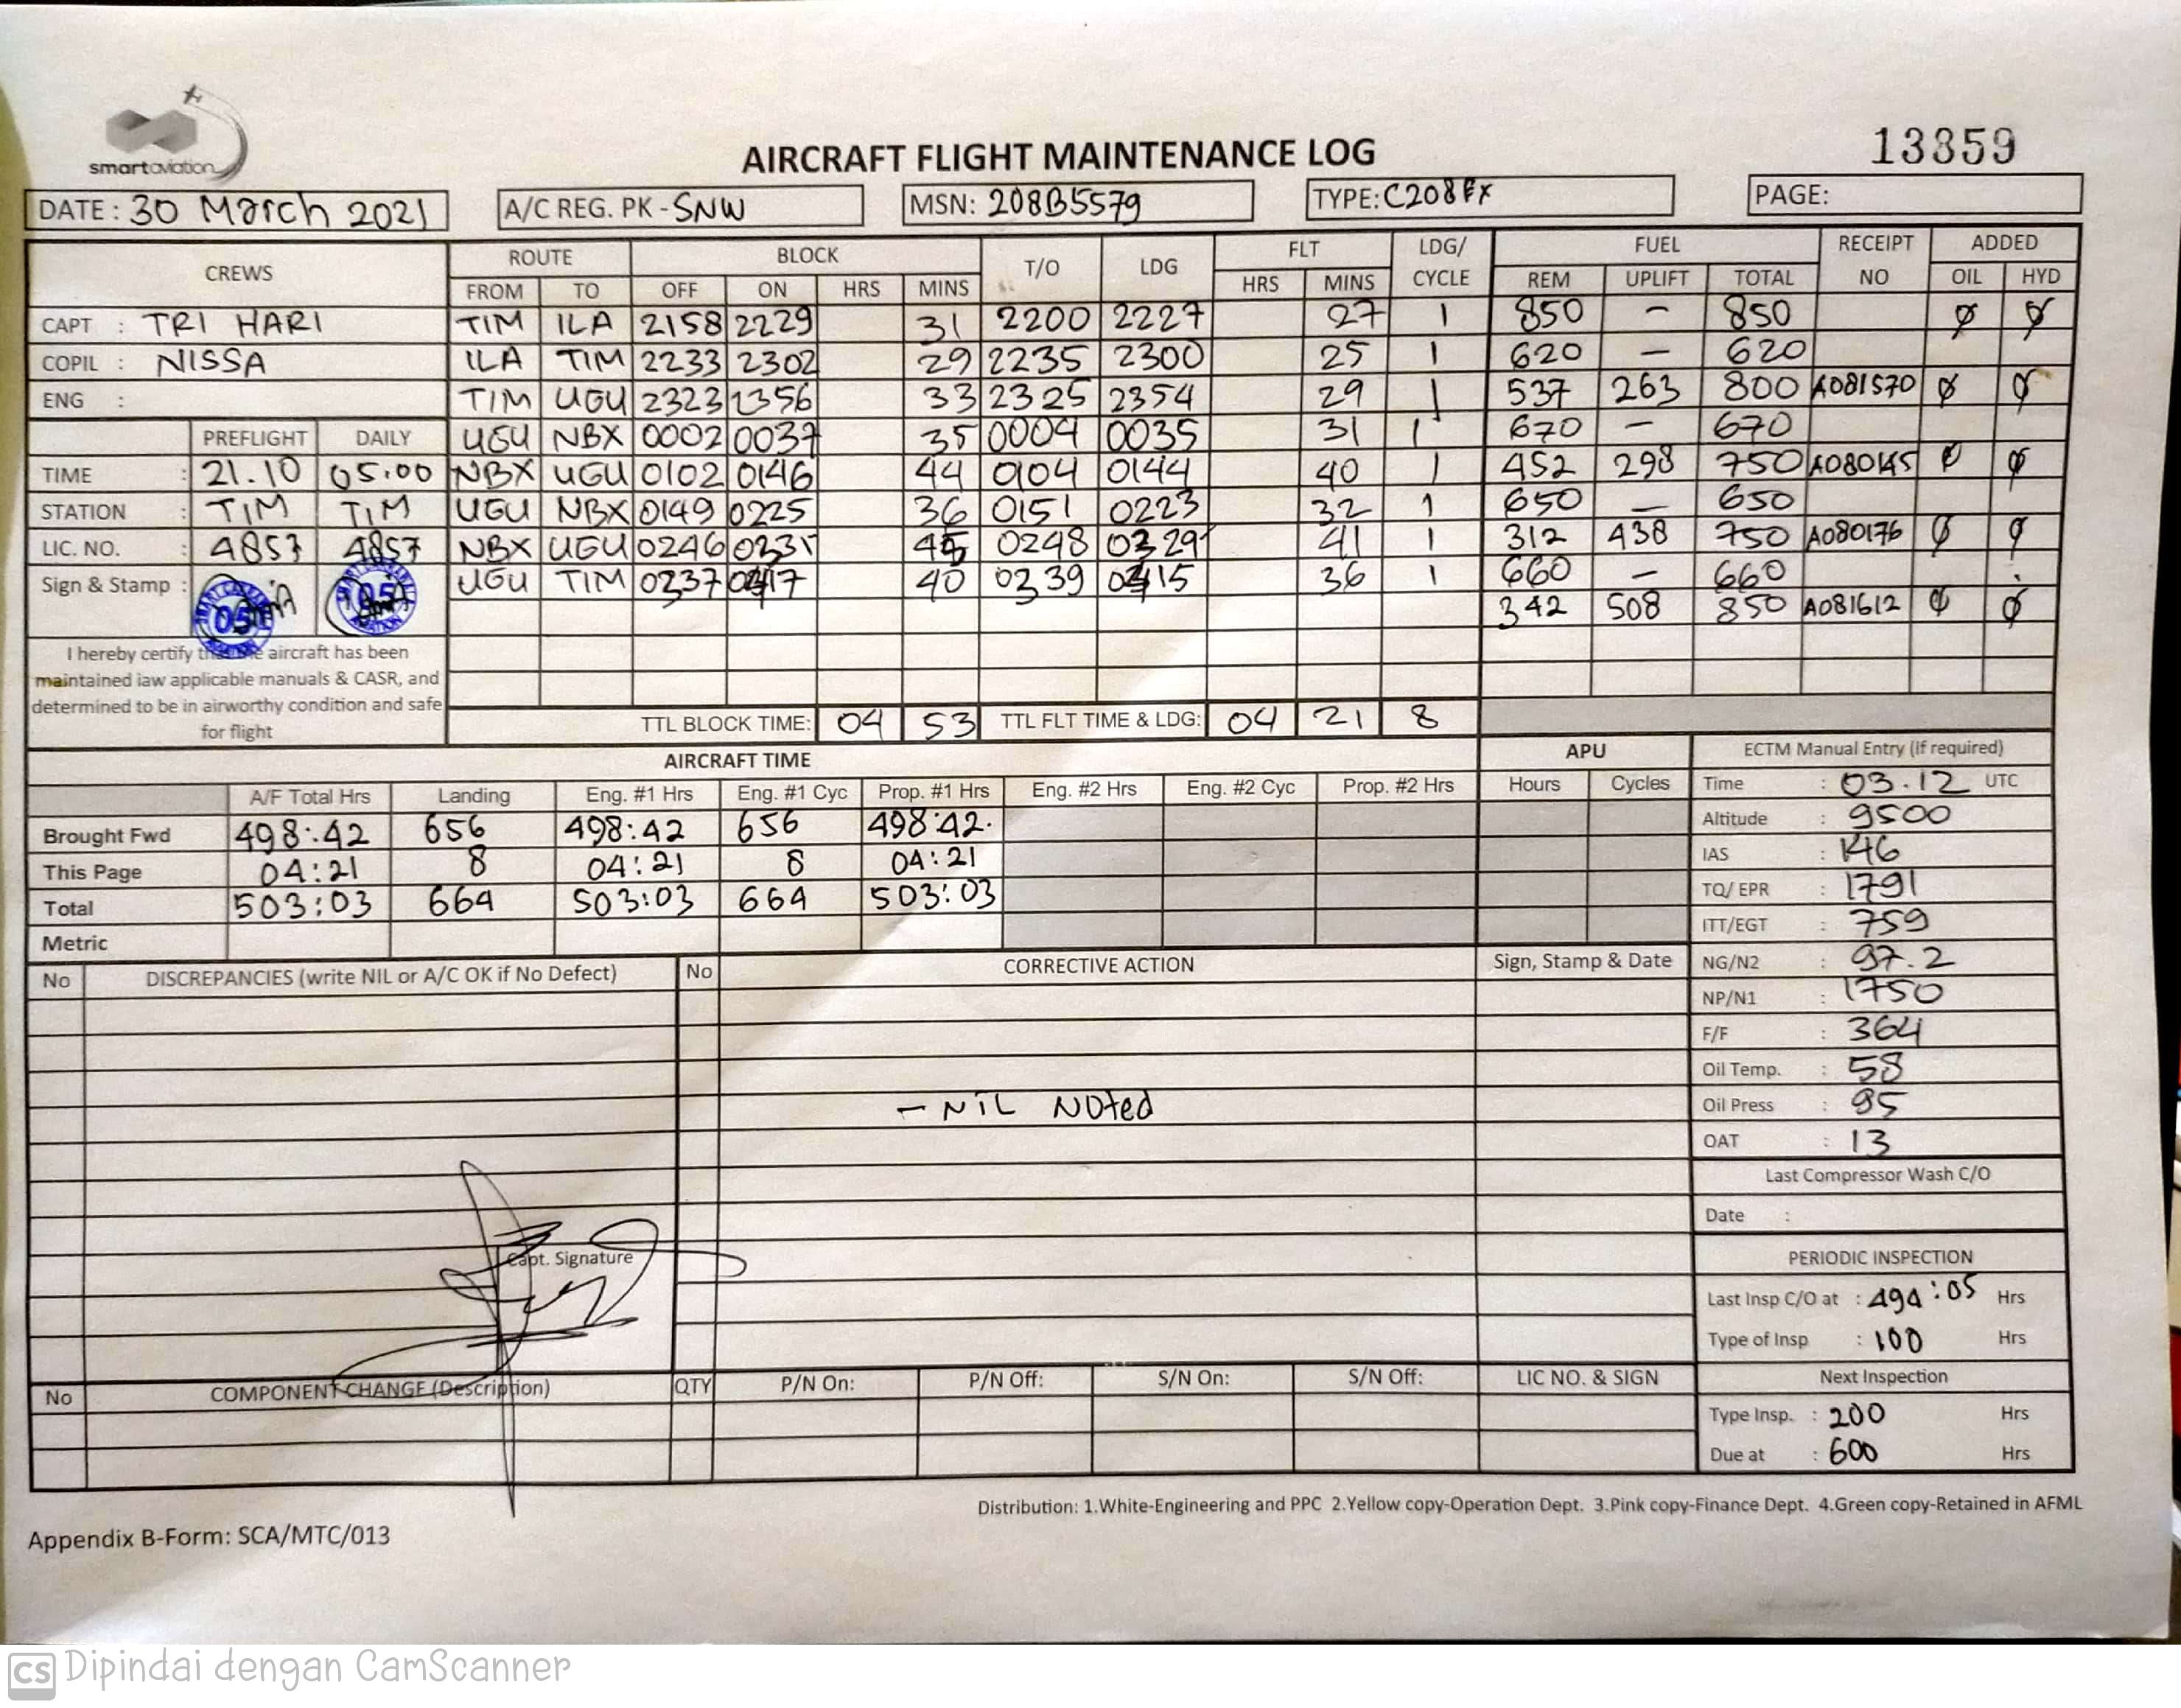 smartaviation
AIRCRAFT FLIGHT MAINTENANCE LOG
13359
DATE: 30 March 2021 A/C REG. PK - SNW MSN: 208B5579 TYPE: C208EX PAGE:
CREWS ROUTE BLOCK T/O LDG FLT LDG/ CYCLE FUEL RECEIPT NO ADDED
FROM TO OFF ON HRS MINS HRS MINS REM UPLIFT TOTAL OIL HYD
CAPT : TRI HARI TIM ILA 2158 2229 31 2200 2227 27 1 850 - 850 Ø Ø
COPIL : NISSA ILA TIM 2233 2302 29 2235 2300 25 1 620 - 620
ENG : TIM UGU 2323 2356 33 2325 2354 29 1 537 263 800 A081570 Ø Ø
PREFLIGHT DAILY UGU NBX 0002 0037 35 0004 0035 31 1 670 - 670
TIME : 21.10 05.00 NBX UGU 0102 0146 44 0104 0144 40 1 452 298 750 A080145 Ø Ø
STATION : TIM TIM UGU NBX 0149 0225 36 0151 0223 32 1 650 - 650
LIC. NO. : 4857 4857 NBX UGU 0246 0331 45 0248 0329 41 1 312 438 750 A080176 Ø Ø
Sign & Stamp : UGU TIM 0337 0417 40 0339 0415 36 1 660 - 660
05 05 342 508 850 A081612 Ø Ø
I hereby certify the aircraft has been
maintained iaw applicable manuals & CASR, and
determined to be in airworthy condition and safe
for flight
TTL BLOCK TIME: 04 53 TTL FLT TIME & LDG: 04 21 8
AIRCRAFT TIME APU ECTM Manual Entry (if required)
A/F Total Hrs Landing Eng. #1 Hrs Eng. #1 Cyc Prop. #1 Hrs Eng. #2 Hrs Eng. #2 Cyc Prop. #2 Hrs Hours Cycles Time : 03.12 UTC
Brought Fwd 498:42 656 498:42 656 498:42. Altitude : 9500
This Page 04:21 8 04:21 8 04:21 IAS : 146
Total 503:03 664 503:03 664 503:03 TQ/ EPR : 1791
Metric ITT/EGT : 759
No DISCREPANCIES (write NIL or A/C OK if No Defect) No CORRECTIVE ACTION Sign, Stamp & Date NG/N2 : 97.2
NP/N1 : 1750
F/F : 364
Oil Temp. : 58
- NIL Noted Oil Press : 95
OAT : 13
Last Compressor Wash C/O
Date :
Capt. Signature PERIODIC INSPECTION
Last Insp C/O at : 494:05 Hrs
Type of Insp : 100 Hrs
No COMPONENT CHANGE (Description) QTY P/N On: P/N Off: S/N On: S/N Off: LIC NO. & SIGN Next Inspection
Type Insp. : 200 Hrs
Due at : 600 Hrs
Distribution: 1.White-Engineering and PPC 2.Yellow copy-Operation Dept. 3.Pink copy-Finance Dept. 4.Green copy-Retained in AFML
Appendix B-Form: SCA/MTC/013
CS Dipindai dengan CamScanner